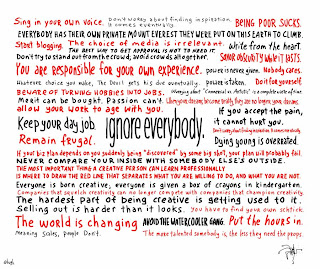 Sing in your own voice. Don't worry about finding inspiration. It comes eventually. BEING POOR SUCKS.
EVERYBODY HAS THEIR OWN PRIVATE MOUNT EVEREST THEY WERE PUT ON THIS EARTH TO CLIMB.
Start blogging. The choice of media is irrelevant. Write from the heart.
THE BEST WAY TO GET APPROVAL IS NOT TO NEED IT.
Don't try to stand out from the crowd; avoid crowds altogether. SAVOR OBSCURITY WHILE IT LASTS.
You are responsible for your own experience. Power is never given. Nobody cares.
Whatever choice you make, The Devil gets his due eventually. Power is taken. Do it for yourself.
BEWARE OF TURNING HOBBIES INTO JOBS. Worrying about "Commercial vs. Artistic" is a complete waste of time.
Merit can be bought. Passion can't. When your dreams become reality, they are no longer your dreams.
Allow your work to age with you. If you accept the pain,
Keep your day job. ignore everybody. it cannot hurt you.
Remain frugal. Dying young is overrated.
If your biz plan depends on you suddenly being "discovered" by some big shot, your plan will probably fail.
NEVER COMPARE YOUR INSIDE WITH SOMEBODY ELSE'S OUTSIDE.
THE MOST IMPORTANT THING A CREATIVE PERSON CAN LEARN PROFESSIONALLY
IS WHERE TO DRAW THE RED LINE THAT SEPARATES WHAT YOU ARE WILLING TO DO, AND WHAT YOU ARE NOT.
Everyone is born creative; everyone is given a box of crayons in kindergarten.
Companies that squelch creativity can no longer compete with companies that champion creativity.
The hardest part of being creative is getting used to it.
Selling out is harder than it looks. You have to find your own schtick
The world is changing AVOID THE WATERCOOLER GANG. Put the hours in.
Meaning Scales, People Don't. The more talented somebody is, the less they need the props